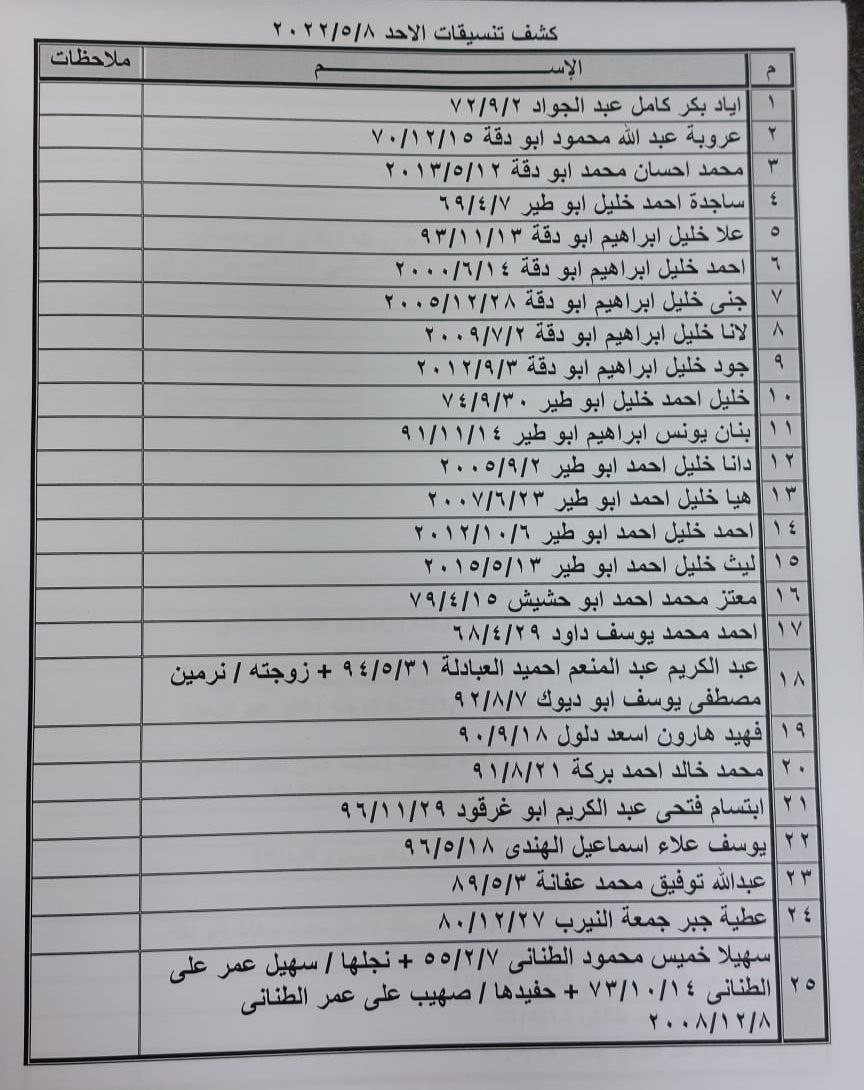 كشف تنسيقات الاحد ٢٠٢٢/٥/٨
م الإســـــم ملاحظات
١ اياد بكر كامل عبد الجواد ٧٢/٩/٢
٢ عروبة عبد الله محمود ابو دقة ٧٠/١٢/١٥
٣ محمد احسان محمد ابو دقة ٢٠١٣/٥/١٢
٤ ساجدة احمد خليل ابو طير ٦٩/٤/٧
٥ علا خليل ابراهيم ابو دقة ٩٣/١١/١٣
٦ احمد خليل ابراهيم ابو دقة ٢٠٠٠/٦/١٤
٧ جنى خليل ابراهيم ابو دقة ٢٠٠٥/١٢/٢٨
٨ لانا خليل ابراهيم ابو دقة ٢٠٠٩/٧/٢
٩ جود خليل ابراهيم ابو دقة ٢٠١٢/٩/٣
١٠ خليل احمد خليل ابو طير ٧٤/٩/٣٠
١١ بنان يونس ابراهيم ابو طير ٩١/١١/١٤
١٢ دانا خليل احمد ابو طير ٢٠٠٥/٩/٢
١٣ هيا خليل احمد ابو طير ٢٠٠٧/٦/٢٣
١٤ احمد خليل احمد ابو طير ٢٠١٢/١٠/٦
١٥ ليث خليل احمد ابو طير ٢٠١٥/٥/١٣
١٦ معتز محمد احمد ابو حشيش ٧٩/٤/١٥
١٧ احمد محمد يوسف داود ٦٨/٤/٢٩
١٨ عبد الكريم عبد المنعم احميد العبادلة ٩٤/٥/٣١ + زوجته / نرمين
مصطفى يوسف ابو ديوك ٩٢/٨/٧
١٩ فهيد هارون اسعد دلول ٩٠/٩/١٨
٢٠ محمد خالد احمد بركة ٩١/٨/٢١
٢١ ابتسام فتحى عبد الكريم ابو غرقود ٩٦/١١/٢٩
٢٢ يوسف علاء اسماعيل الهندى ٩٦/٥/١٨
٢٣ عبدالله توفيق محمد عفانة ٨٩/٥/٣
٢٤ عطية جبر جمعة النيرب ٨٠/١٢/٢٧
٢٥ سهيلا خميس محمود الطنانى ٥٥/٢/٧ + نجلها / سهيل عمر على
الطنانى ٧٣/١٠/١٤ + حفيدها / صهيب على عمر الطنانى
٢٠٠٨/١٢/٨